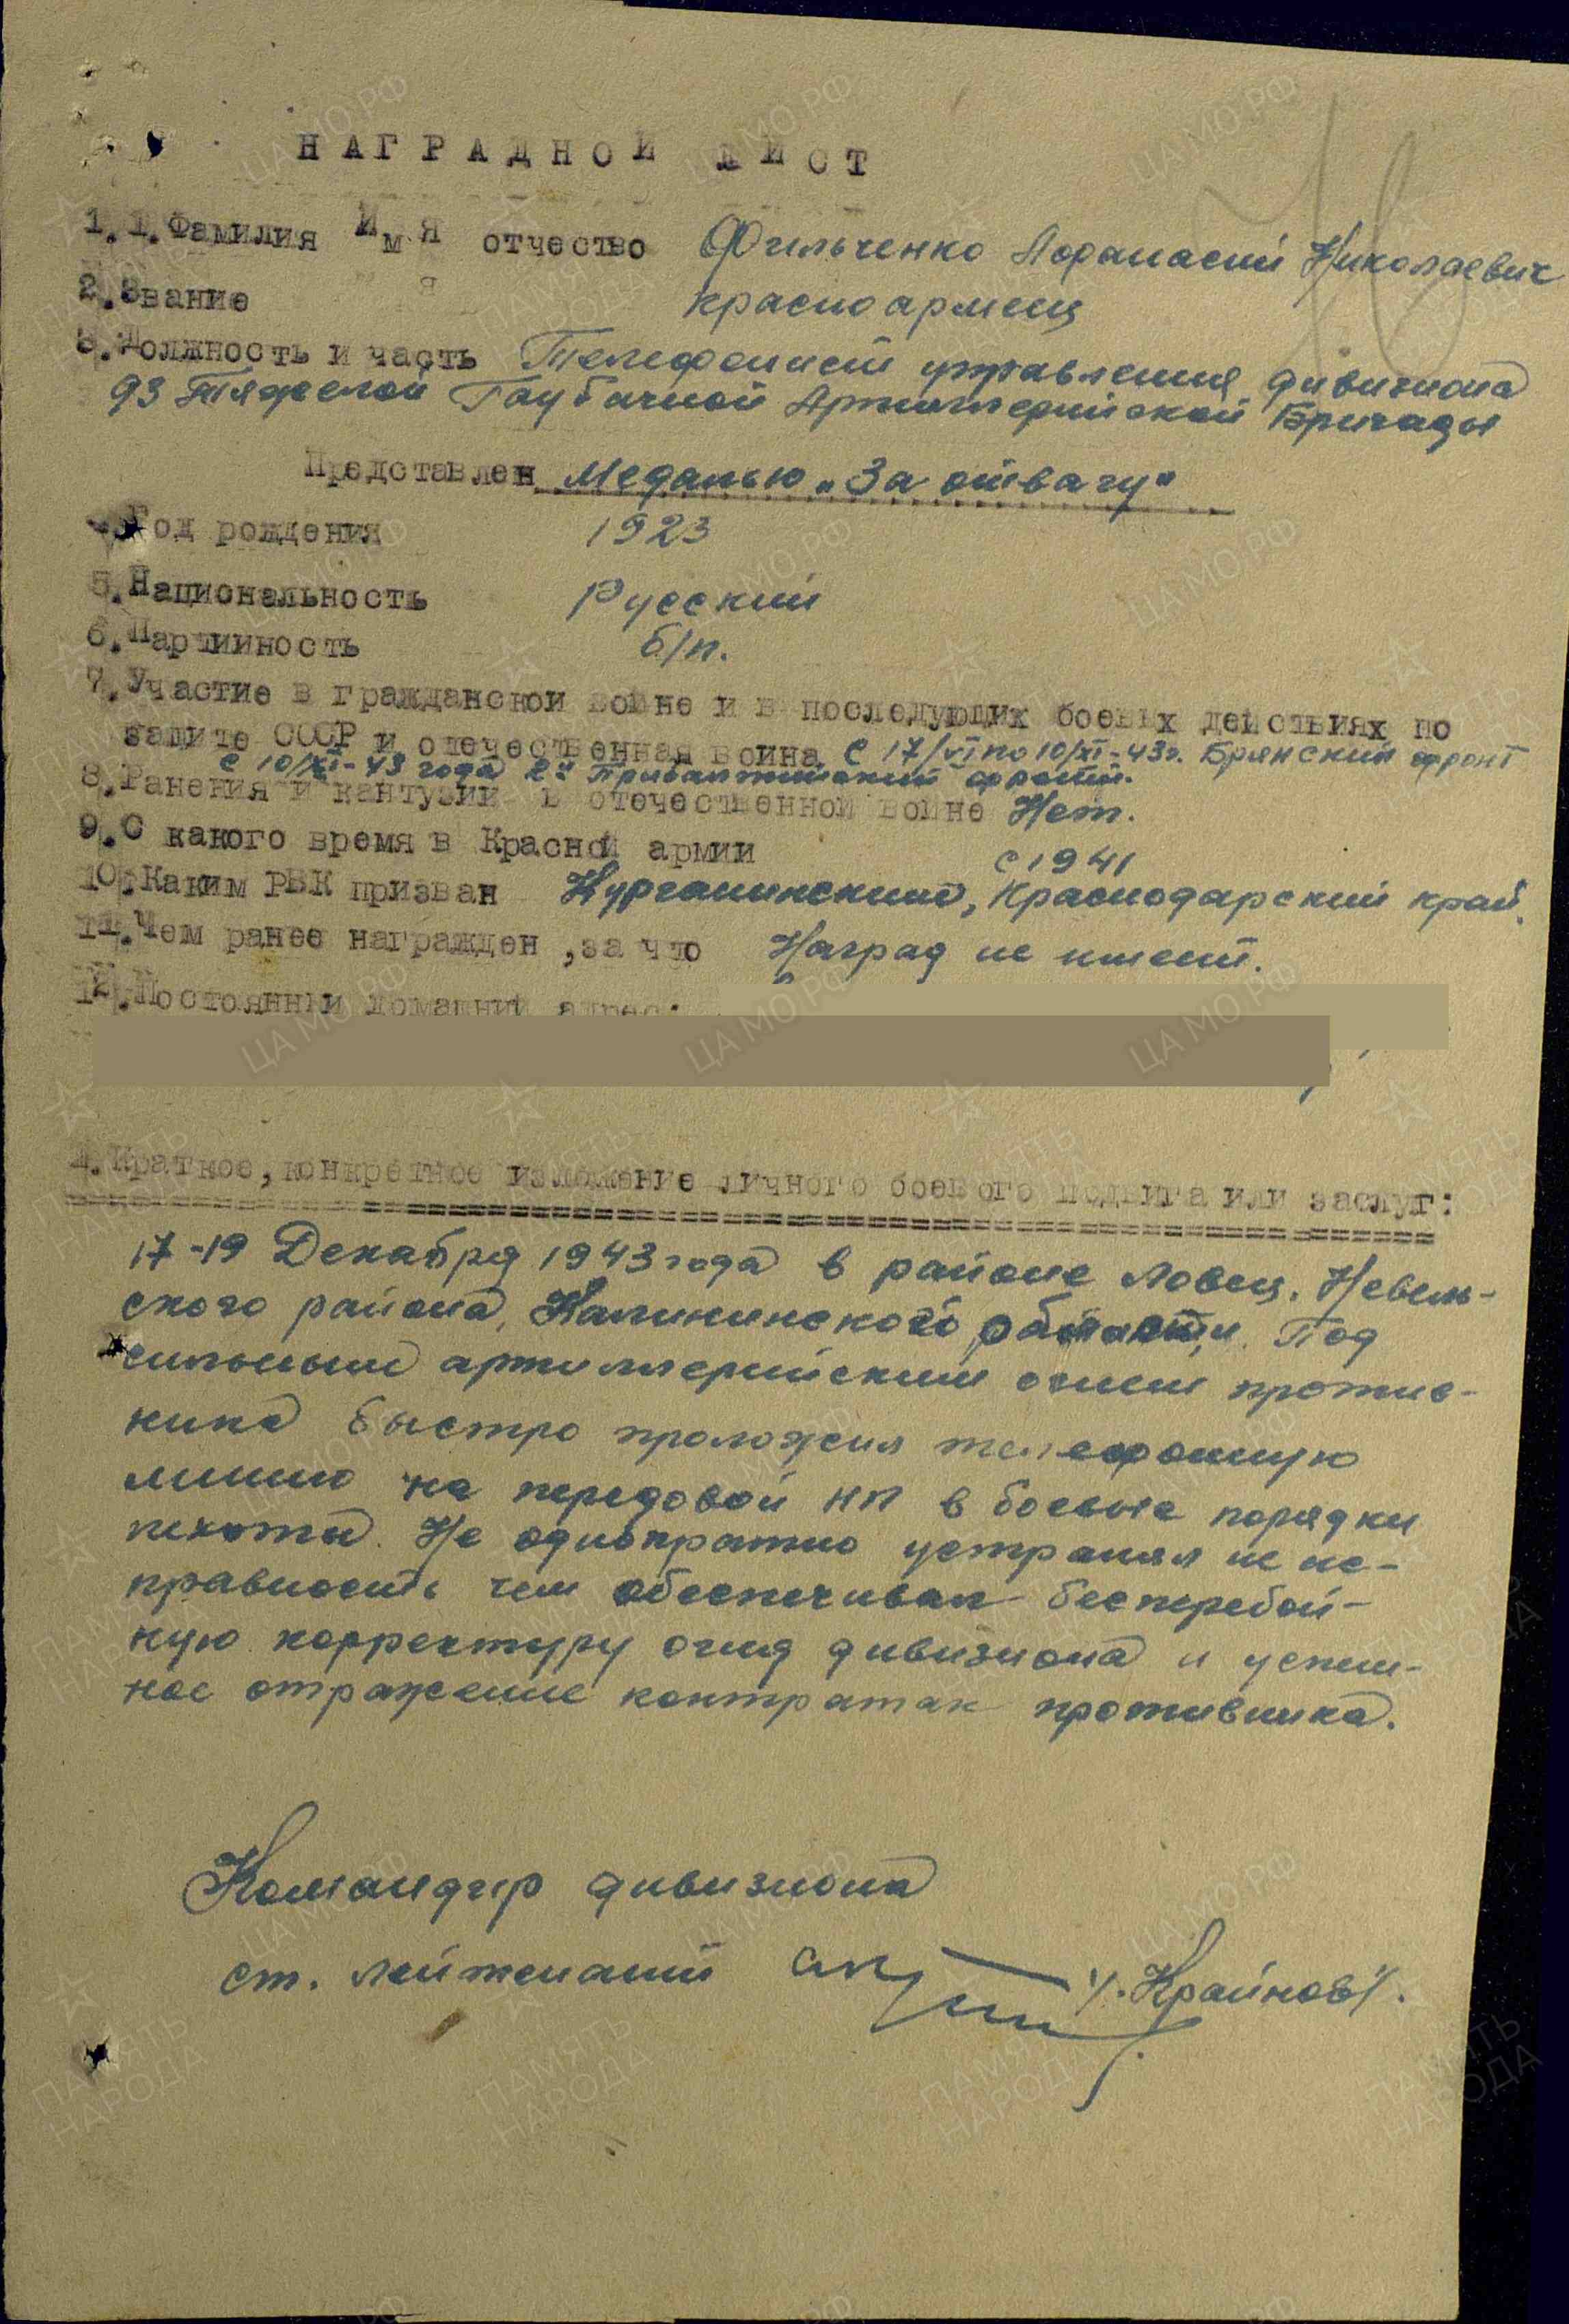 НАГРАДНОЙ ЛИСТ
1.1.Фамилия Имя отчество Фильченко Афанасий Николаевич
2.Звание красноармеец
3.Должность и часть Телефонист управления дивизиона
93 Тяжелой Гаубичной Артиллерийской Бригады
Представлен Медалью „За отвагу"
Год рождения 1923
5.Национальность Русский
6.Партийность б/п.
7.Участие в гражданской войне и в последующих боевых действиях по
защите СССР и отечественная война С 17/VI по 10/XI-43г. Брянский фронт
с 10/XI-43 года 2й Прибалтийский фронт.
8.Ранения и кантузии в отечественной войне Нет.
9.С какого время в Красной армии с 1941
10.Каким РВК призван Курганинский, Краснодарский край.
11.Чем ранее награжден, за что Наград не имеет.
12.Постоянный домашний адрес:
1.Краткое, конкретное изложение личного боевого подвига или заслуг:
17-19 Декабря 1943 года в районе Ловец. Невель-
ского района, Калининского области. Под
сильным артиллерийским огнем против-
ника быстро проложил телефонную
линию на передовой НП в боевые порядки
пехоты. Не однократно устранял не ис-
правность чем обеспечивал бесперебой-
ную корректуру огня дивизиона и успеш-
ное отражение контратак противника.
Командир дивизиона
ст. лейтенант /. Крайнов /.
ЦА МО РФ
ПАМЯТЬ
НАРОДА